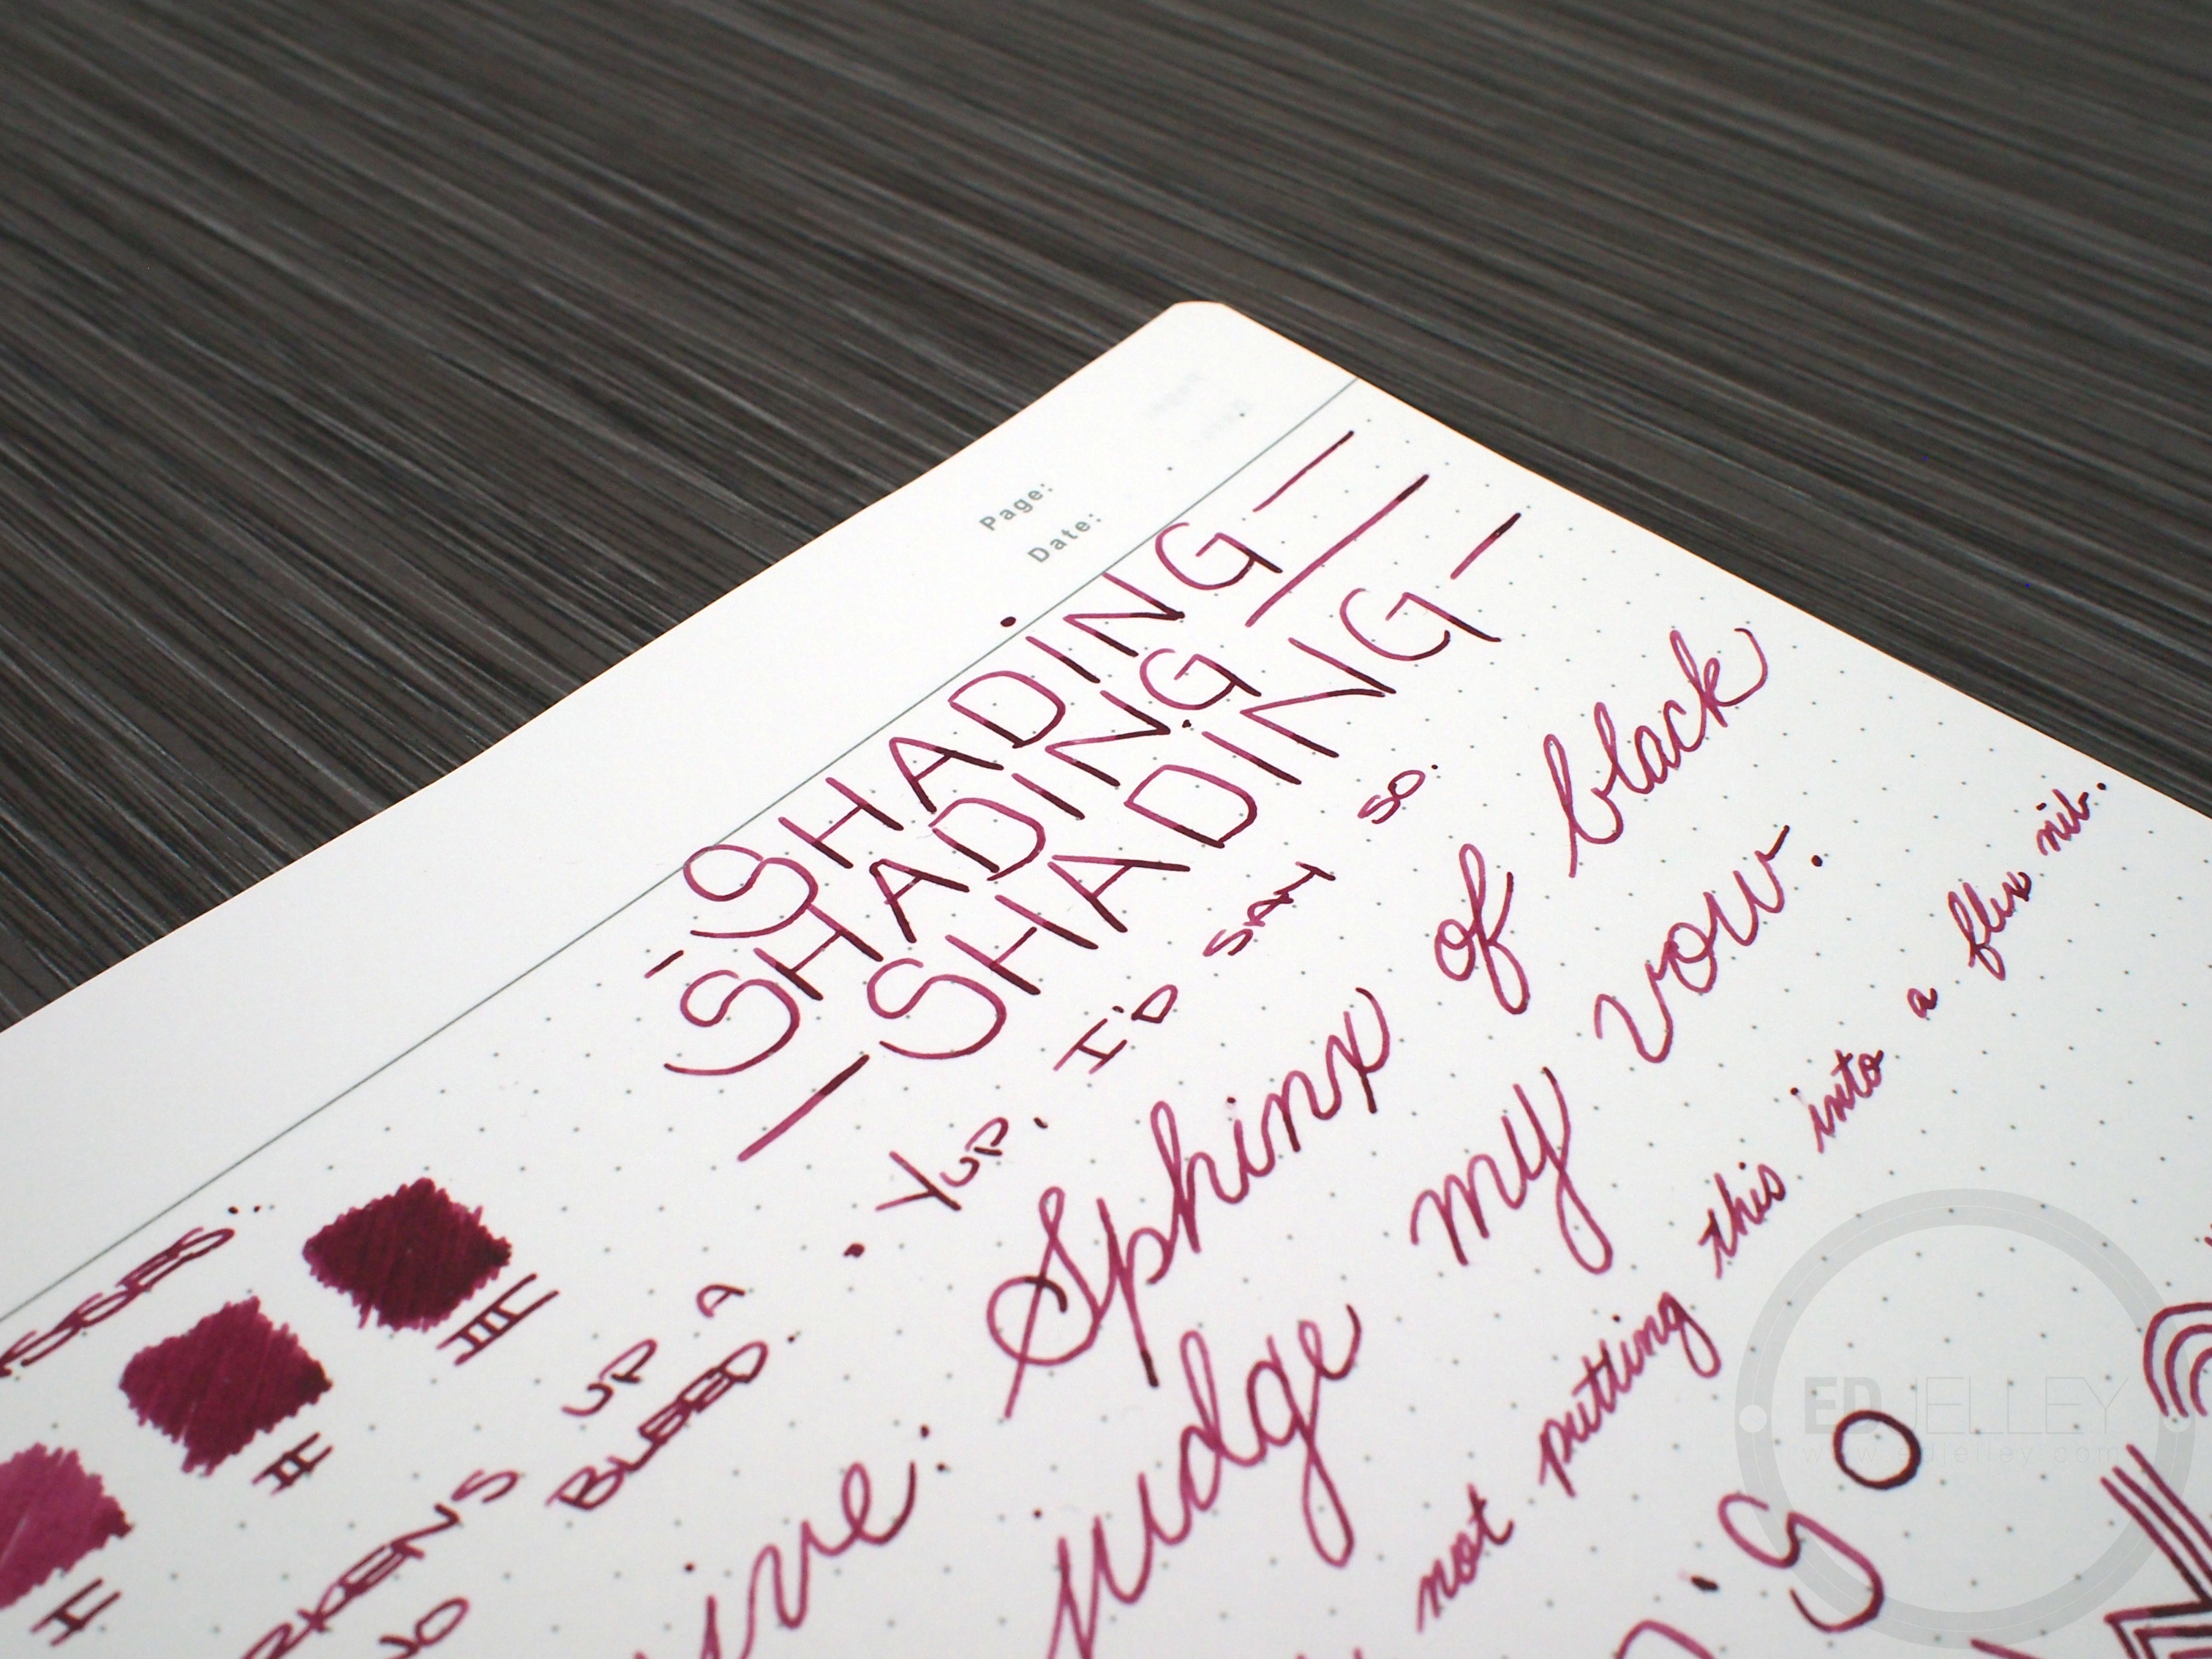 Page:
Date:
SHADING
SHADING
SHADING
YUP. I'D SAY SO.
III
II
I
UP A
BLEED.
Sphinx of black
judge my vow.
not putting this into a flex nib.
ED JELLEY
www.edjelley.com